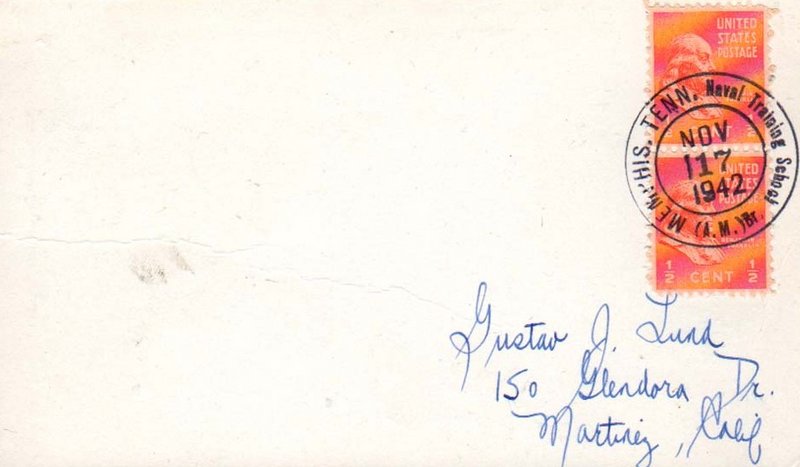 UNITED
STATES
POSTAGE
MEMPHIS, TENN. Naval Training School
(A.M.) Br.
NOV
17
1942
UNITED
STATES
POSTAGE
½ CENT ½
Gustav J. Lund
150 Glendora Dr.
Martinez, Calif